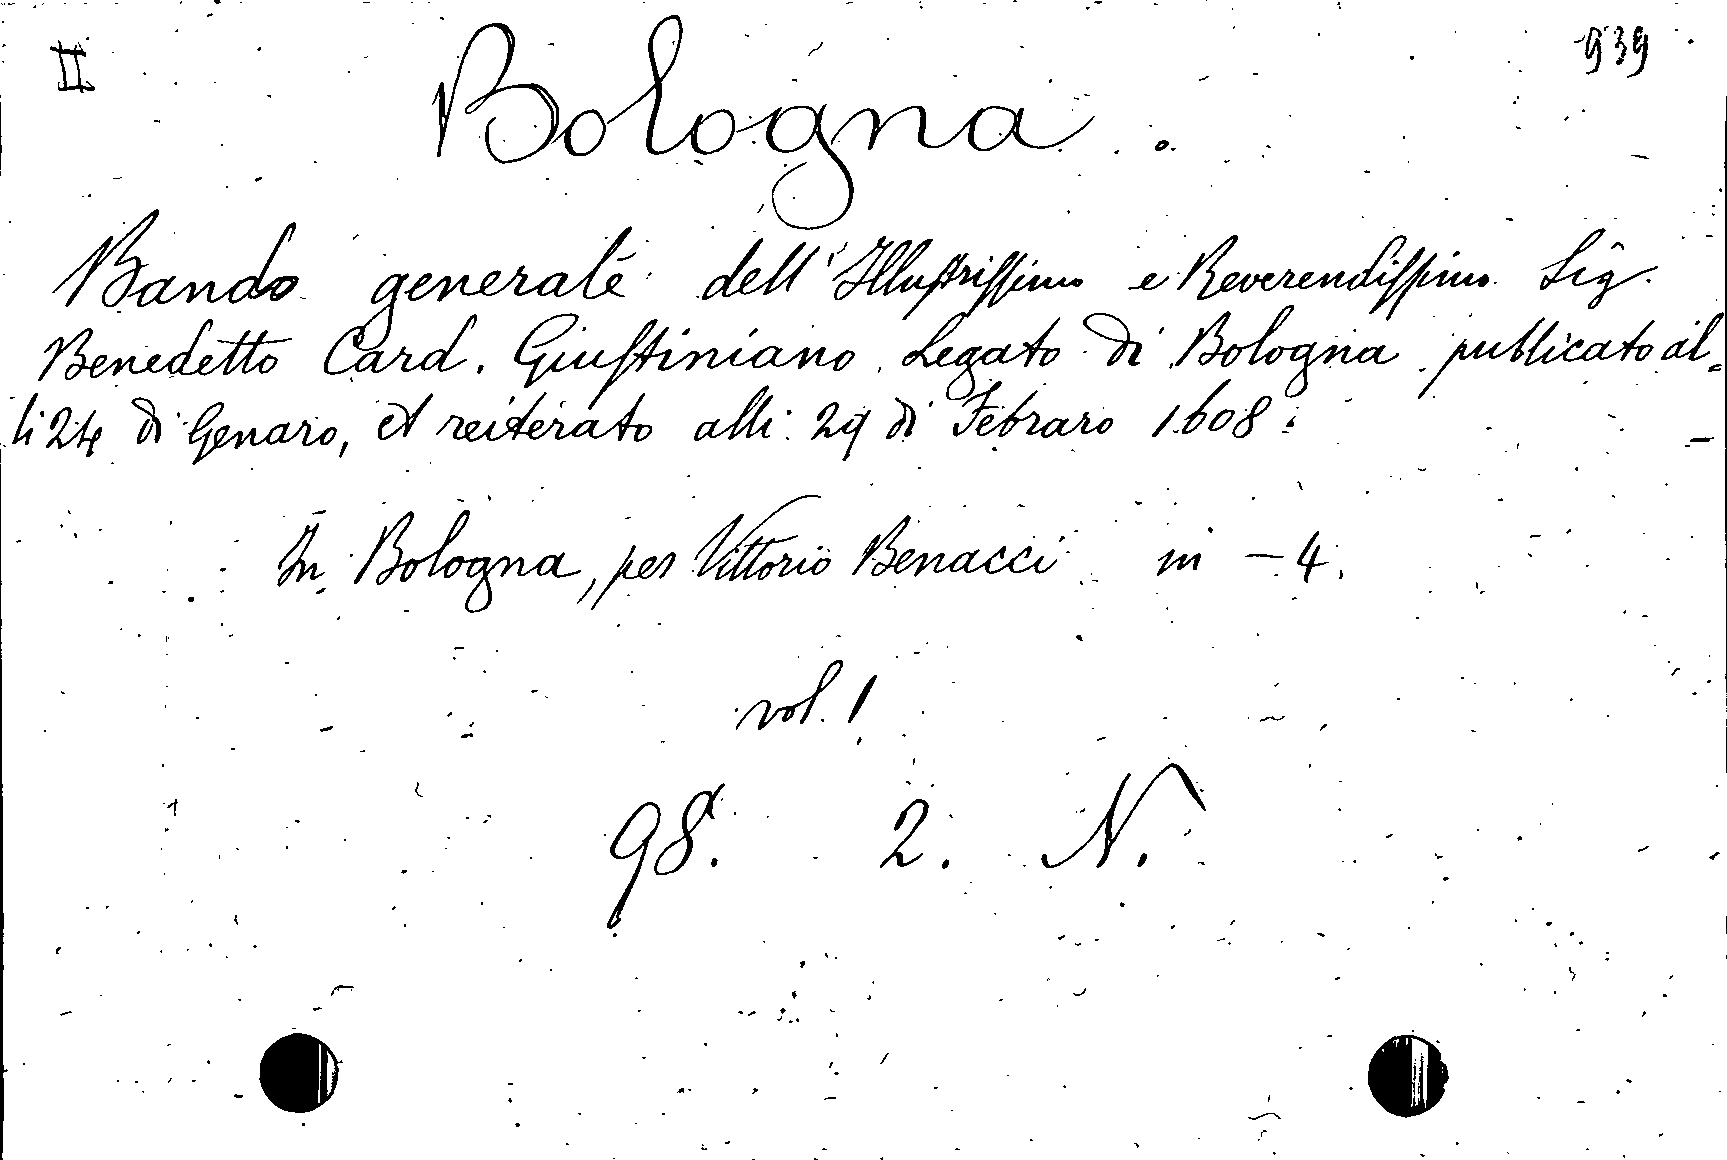 II
939
Bologna.
Bando generale dell'Illustrissimo e Reverendissimo Sig.
Benedetto Card. Giustiniano Legato di Bologna publicato al-
li 24 di Genaro, et reiterato alli 29 di Febraro 1608.
In Bologna, per Vittorio Benacci in - 4.
vol. 1
98. 2. N.